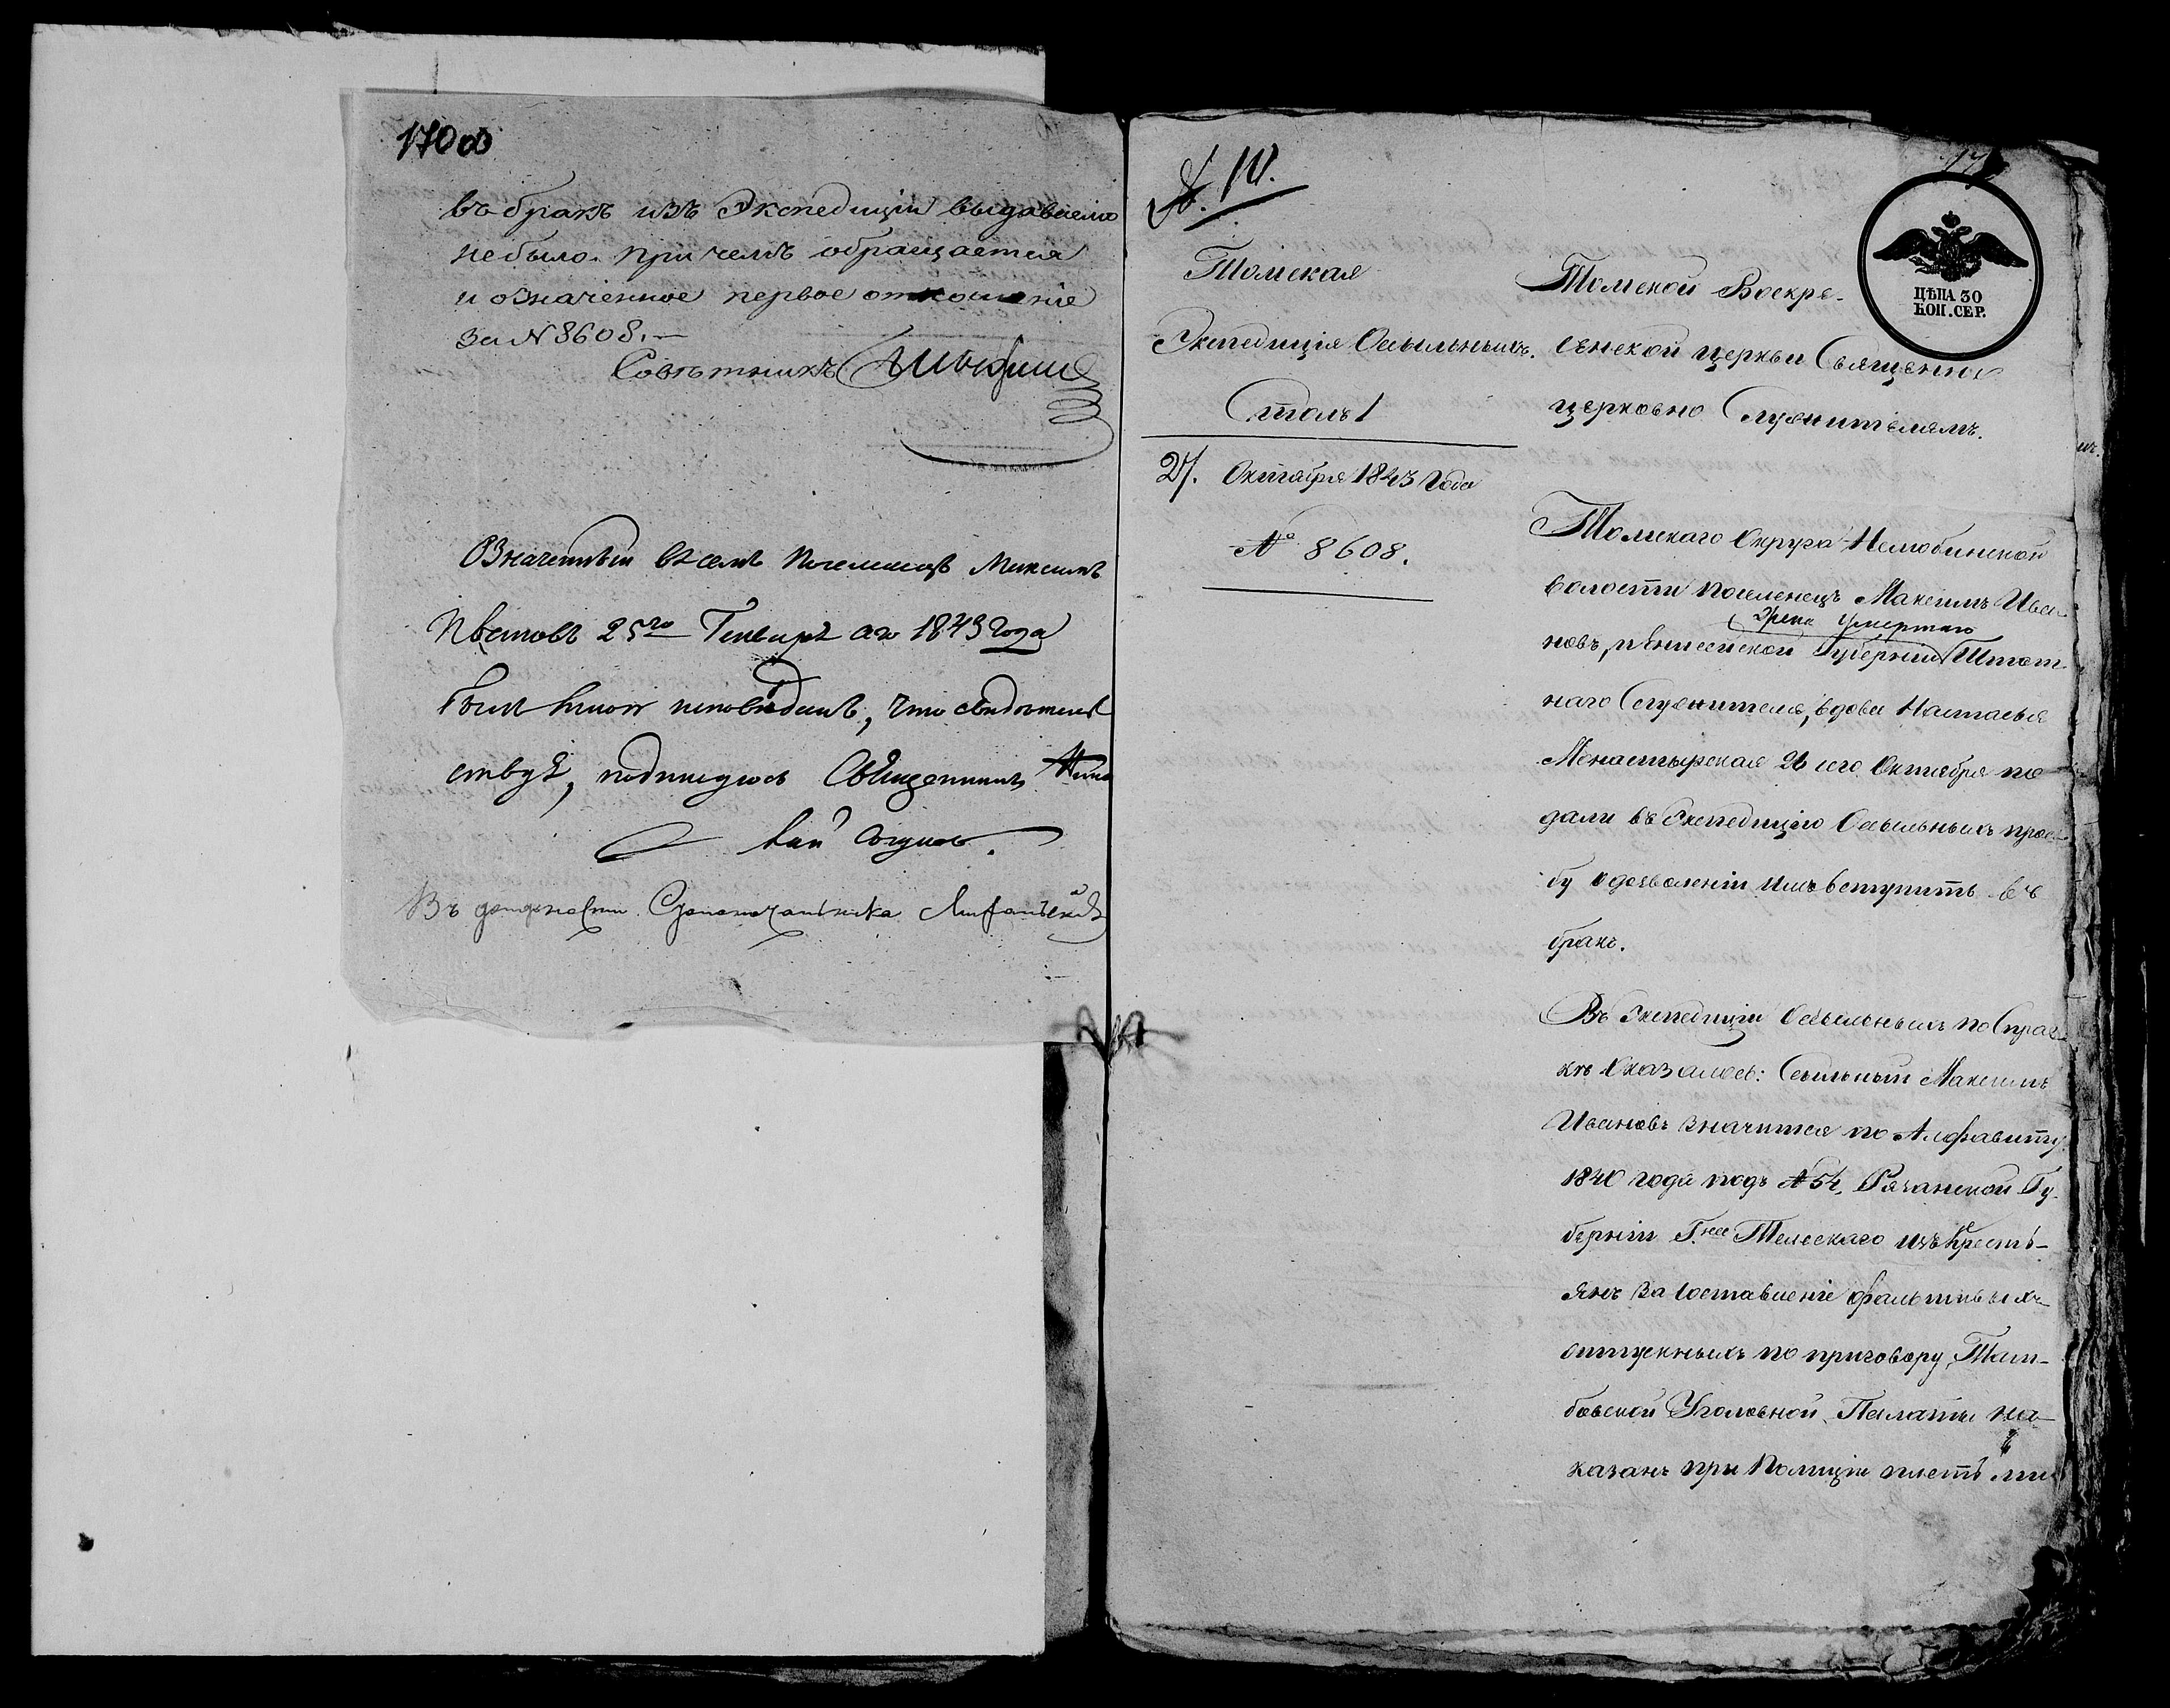 170 об
въ бракъ изъ Экспедиціи выдаваемо
небыло. При чемъ обращается
и означенное первое отношеніе
за № 8608. —
Совѣтникъ
Означенный въ семъ поселенецъ Максимъ
Ивановъ 25го Генваря сего 1843 года
былъ мною исповѣданъ, что свидѣтель
ствуя, подпишуюсь Священникъ Нико
лай
Въ должности Столоначальника
Томская
Экспедиція Ссыльныхъ.
Столъ 1
27. Октября 1843 года
№ 8608.
ЦѢНА 30
КОП. СЕР.
Томской Воскре-
сенской церкви Священно
церковно Служителямъ.
Томскаго Округа Нелюбинской
волости поселенецъ Максимъ Ива-
умершаго
новъ, и Енисейской Губерніи Штат-
наго Служителя, вдова Настасья
Монастырская 26 сего Октября по
дали въ Экспедицію Ссыльныхъ прось
бу о дозволеніи имъ вступить въ
бракъ.
Въ Экспедиціи Ссыльныхъ по Справ
кѣ Оказалось: Ссыльный Максимъ
Ивановъ значится по Алфавиту
1840 года подъ № 54, Рязанской Гу-
берніи Гна изъ крестъ-
янъ за Составленіе фальшивыхъ
отпускныхъ по приговору Там-
бовской Уголовной Палаты на-
казанъ при Полиціи плетьми